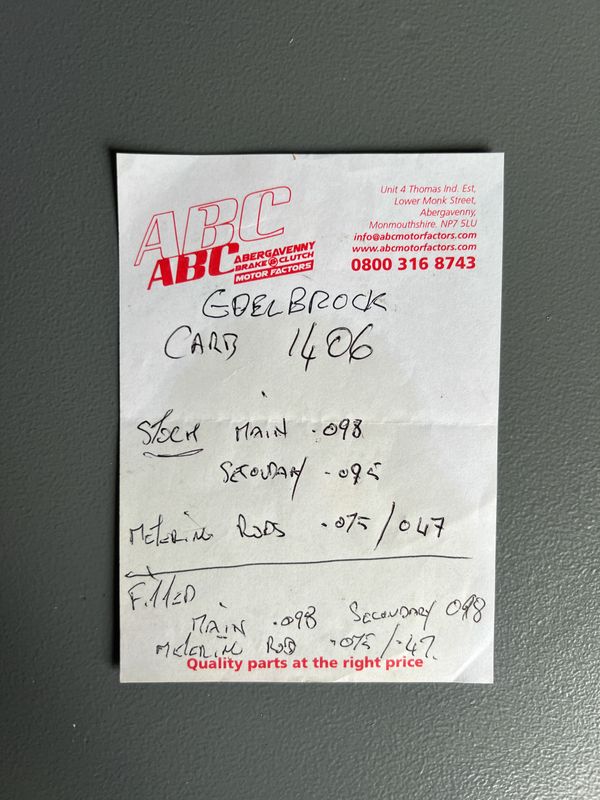 ABC
ABC ABERGAVENNY
BRAKE & CLUTCH
MOTOR FACTORS
Unit 4 Thomas Ind. Est,
Lower Monk Street,
Abergavenny,
Monmouthshire. NP7 5LU
info@abcmotorfactors.com
www.abcmotorfactors.com
0800 316 8743
EDELBROCK
CARB 1406
STOCK MAIN .098
SECONDARY .095
METERING RODS .075/047
FITTED
MAIN .098 SECONDARY 098
METERING ROD .075/.47.
Quality parts at the right price